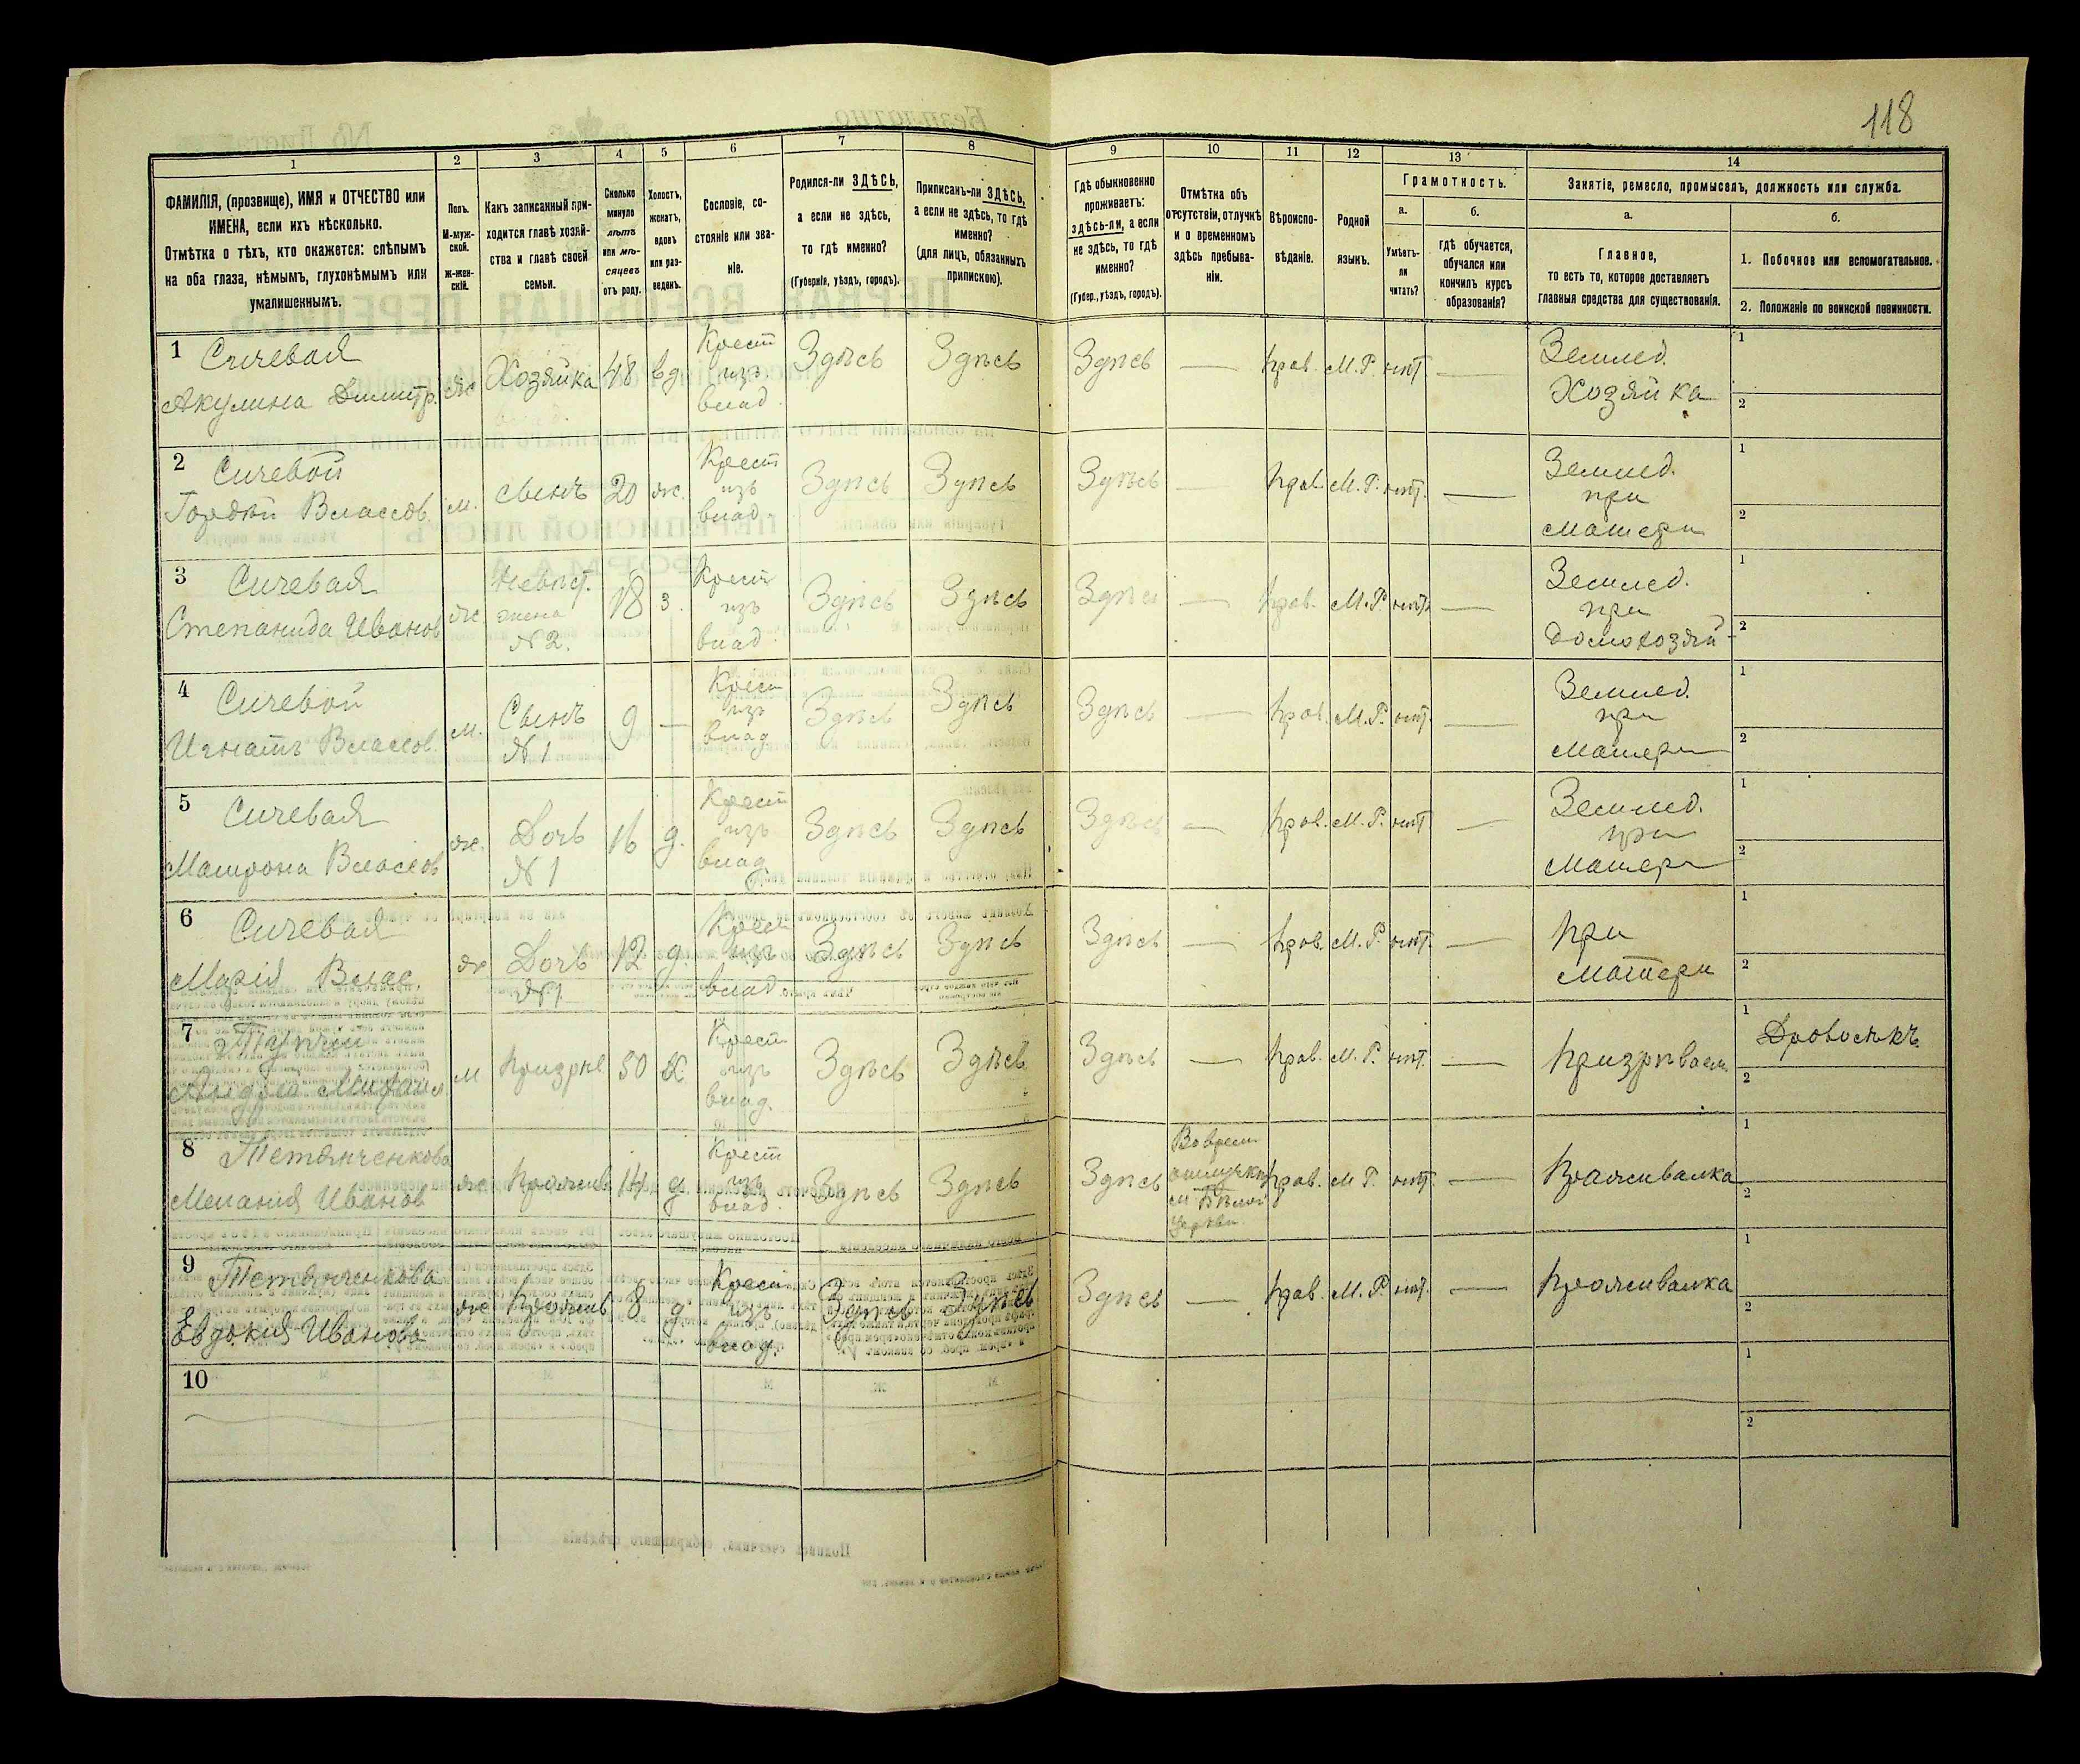 118
1 2 3 4 5 6 7 8 9 10 11 12 13 14
ФАМИЛІЯ, (прозвище), ИМЯ и ОТЧЕСТВО или ИМЕНА, если ихъ нѣсколько.
Отмѣтка о тѣхъ, кто окажется: слѣпымъ на оба глаза, нѣмымъ, глухонѣмымъ или умалишеннымъ.
Полъ. М-мужской. ж-женскій.
Какъ записанный приходится главѣ хозяйства и главѣ своей семьи.
Сколько минуло лѣтъ или мѣсяцевъ отъ роду.
Холостъ, женатъ, вдовъ или разведенъ.
Сословіе, состояніе или званіе.
Родился-ли ЗДѢСЬ, а если не здѣсь, то гдѣ именно?
(Губернія, уѣздъ, городъ).
Приписанъ-ли ЗДѢСЬ, а если не здѣсь, то гдѣ именно?
(для лицъ, обязанныхъ припискою).
Гдѣ обыкновенно проживаетъ: здѣсь-ли, а если не здѣсь, то гдѣ именно?
(Губер., уѣздъ, городъ).
Отмѣтка объ отсутствіи, отлучкѣ и о временномъ здѣсь пребываніи.
Вѣроисповѣданіе.
Родной языкъ.
Грамотность.
а. Умѣетъ-ли читать?
б. гдѣ обучается, обучался или кончилъ курсъ образованія?
Занятіе, ремесло, промыселъ, должность или служба.
а. Главное, то есть то, которое доставляетъ главныя средства для существованія.
б.
1. Побочное или вспомогательное.
2. Положеніе по воинской повинности.
1 Сичевая Акулина Димитр. ж Хозяйка 48 вд Крест изъ влад. Здѣсь Здѣсь Здѣсь — прав. М.Р. нѣт — Землед. Хозяйка 1 2
2 Сичевой Гордѣй Власов. м. сынъ 20 ж. Крест изъ влад. Здѣсь Здѣсь Здѣсь — прав. М.Р. нѣт. — Землед. при матери 1 2
3 Сичевая Степанида Иванов ж Невѣст. жена №2. 18 з. Крест изъ влад. Здѣсь Здѣсь Здѣсь — прав. М.Р. нѣт. — Землед. при домохозяй 1 2
4 Сичевой Игнатъ Власов. м. Сынъ №1 9 — Крест изъ влад Здѣсь Здѣсь Здѣсь — прав. М.Р. нѣт. — Землед. при матери 1 2
5 Сичевая Матрона Власов ж. Дочь №1 16 д. Крест изъ влад. Здѣсь Здѣсь Здѣсь — прав. М.Р. нѣт — Землед. при матери 1 2
6 Сичевая Марія Влас. ж. Дочь №1 12 д. Крест изъ влад Здѣсь Здѣсь Здѣсь — прав. М.Р. нѣт. — при матери 1 2
7 Андрей Михаил м 50 Крест изъ влад. Здѣсь Здѣсь Здѣсь — прав. М.Р. нѣт. — призрѣваем. 1 Дровосѣкъ 2
8 Тетянченкова Меланія Иванов ж 14 д Крест изъ влад. Здѣсь Здѣсь Здѣсь отлучкѣ м Бѣлой Церкви прав. М.Р. нѣт. — Проживалка 1 2
9 Тетянченкова Евдокія Иванова ж Прожив 8 д Крест изъ влад. Здѣсь Здѣсь Здѣсь — прав. М.Р. нѣт. — Проживалка 1 2
10 1 2